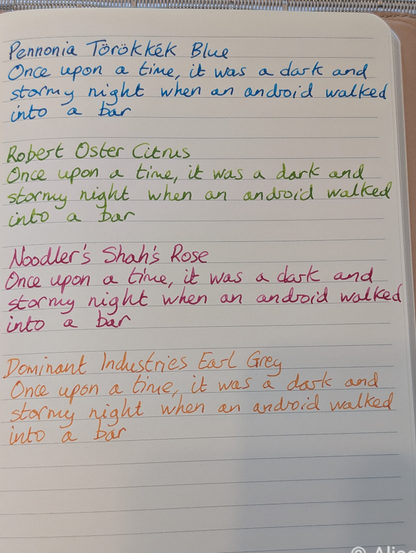 Pennonia Törökkék Blue
Once upon a time, it was a dark and
stormy night when an android walked
into a bar
Robert Oster Citrus
Once upon a time, it was a dark and
stormy night when an android walked
into a bar
Noodler's Shah's Rose
Once upon a time, it was a dark and
stormy night when an android walked
into a bar
Dominant Industries Earl Grey
Once upon a time, it was a dark and
stormy night when an android walked
into a bar